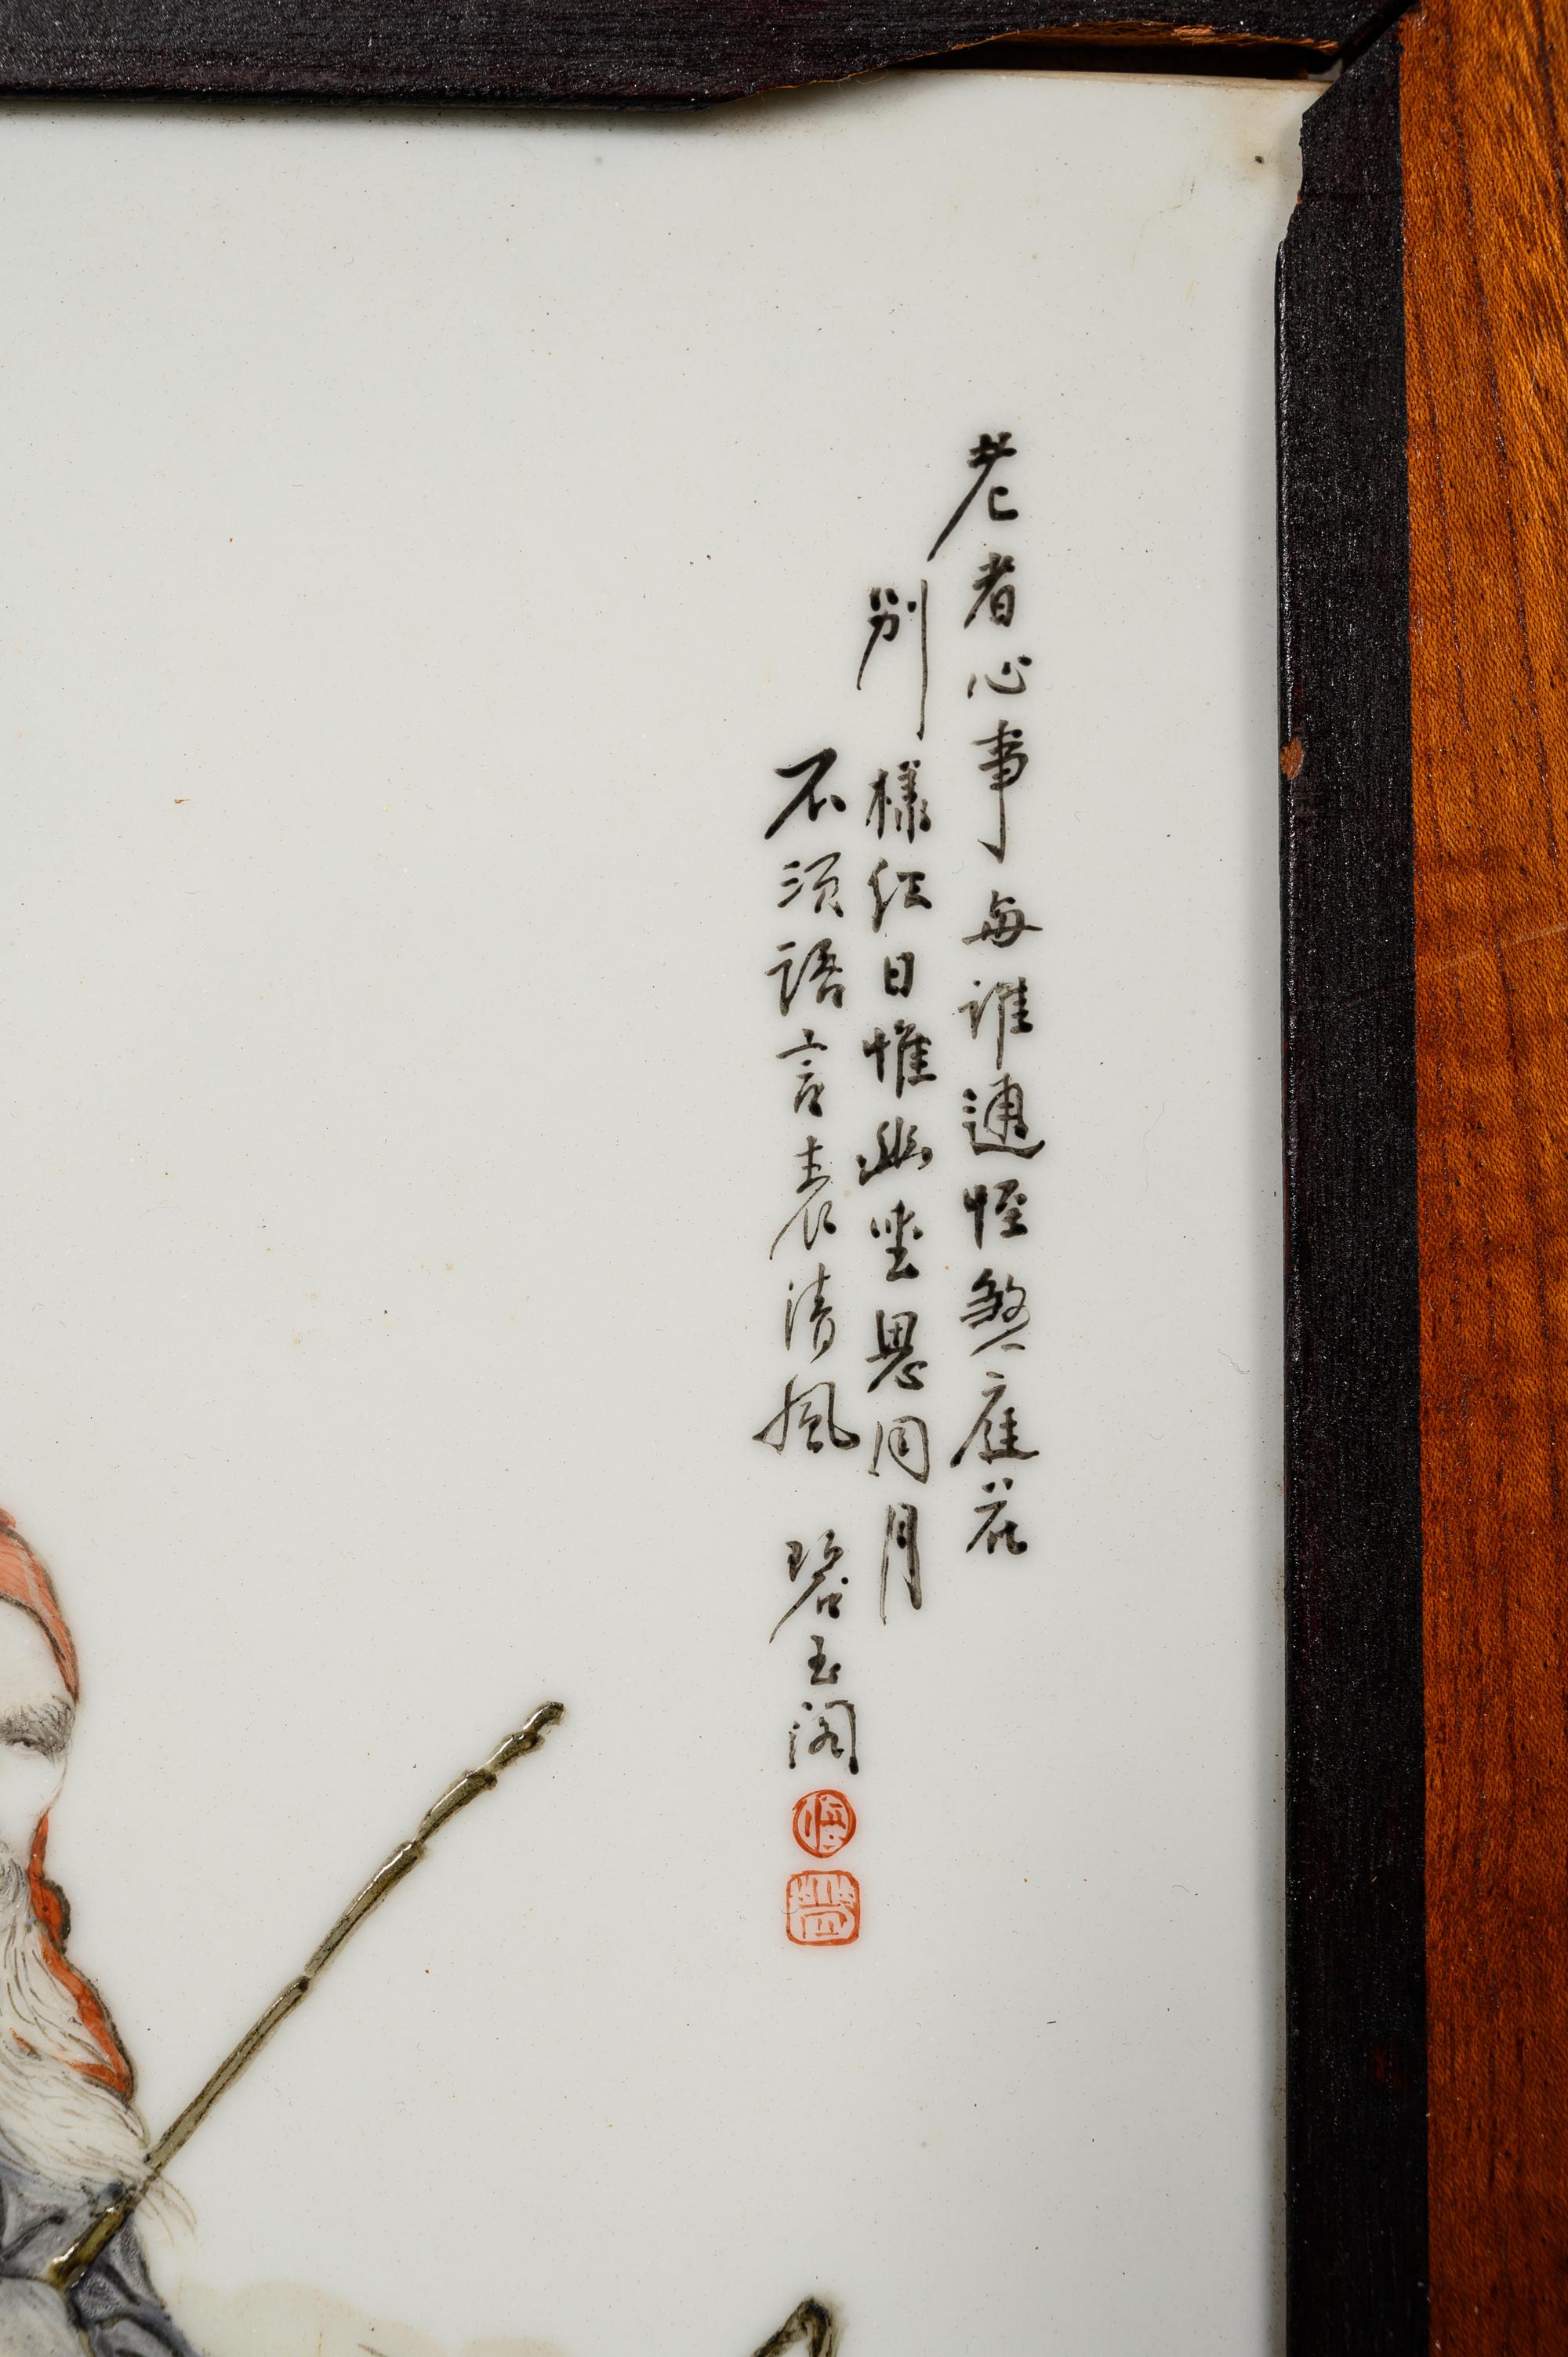 老者心事每誰通怪煞庭花
別樣紅日惟幽坐思同月
不須語言表清風 碧玉閣